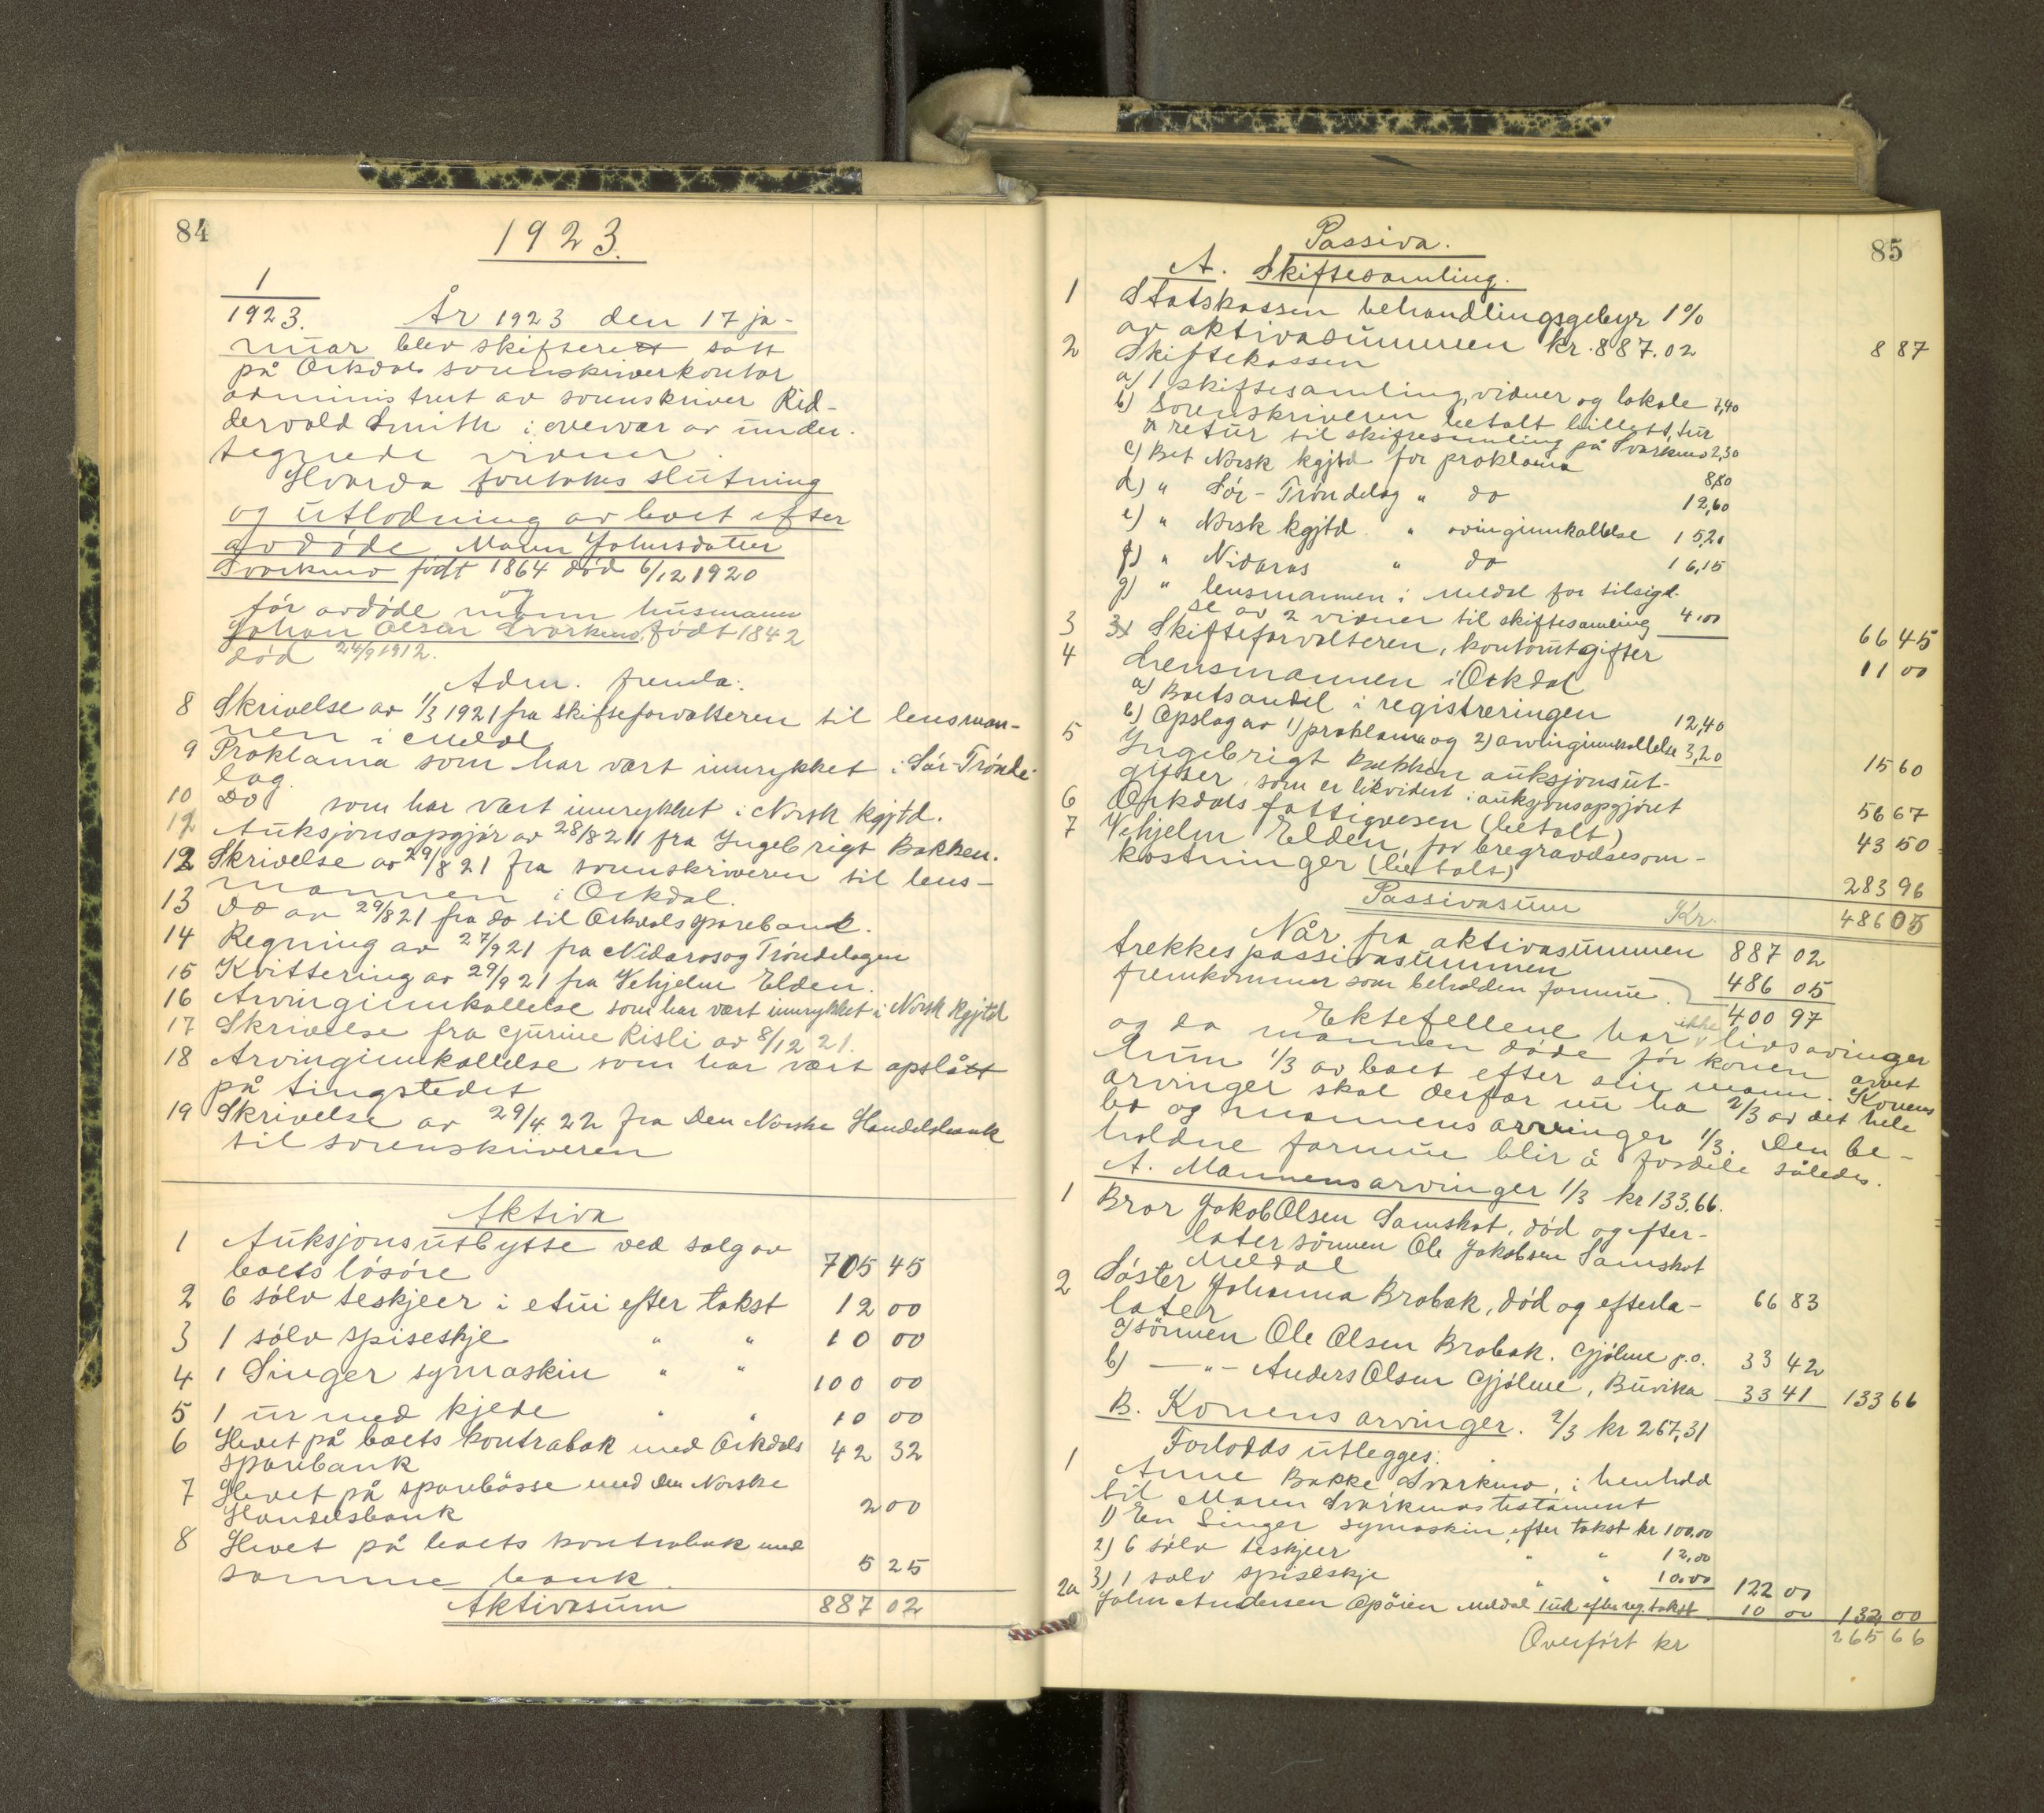 84
1923.
1
1923.
År 1923 den 17 ja-
nuar blev skifterett satt
på Orkdals sorenskriverkontor
administrert av sorenskriver Rid-
dervold Smith i overvær av under-
tegnede vidner.
Hvorda foretokes slutning
og utlodning av boet efter
avdøde Maren Johnsdatter
Svorkmo født 1864 død 6/12 1920
og
før avdøde mann husmann
Johan Olsen Svorkmo, født 1842
død 24/9 1912.
Adm. fremla:
8 Skrivelse av 1/3 1921 fra skifteforvalteren til lensman-
nen i Meldal
9 Proklama som har vært innrykket i Sør-Trønde-
lag.
10 Do som har vært innrykket i Norsk kgjtd.
12 Auksjonsopgjør av 28/8 21 fra Ingebrigt Bakken.
12 Skrivelse av 29/8 21 fra sorenskriveren til lens-
mannen i Orkdal.
13 Do av 29/8 21 fra do til Orkdals sparebank.
14 Regning av 27/9 21 fra Nidaros og Trøndelagen
15 Kvittering av 29/9 21 fra Vehjelm Elden.
16 Arvinginnkallelse som har vært innrykket i Norsk kgjtd
17 Skrivelse fra Gurine Risli av 8/12 21.
18 Arvinginnkallelse som har vært opslått
på tingstedet
19 Skrivelse av 29/4 22 fra Den Norske Handelsbank
til sorenskriveren
Aktiva
1 Auksjonsutbytte ved salg av
boets løsøre 705 45
2 6 sølv teskjeer i etui efter takst 12 00
3 1 sølv spiseskje " " 10 00
4 1 Singer symaskin " " 100 00
5 1 ur med kjede " " 10 00
6 Hevet på boets kontrabok med Orkdals
sparebank 42 32
7 Hevet på sparebøsse med Den Norske
Handelsbank 2 00
8 Hevet på boets kontrabok med
samme bank. 5 25
Aktivasum 887 02
85
Passiva.
A. Skiftesamling.
1 Statskassen behandlingsgebyr 1%
av aktivasummen kr. 887.02 8 87
2 Skiftekassen
a) 1 skiftesamling, vidner og lokale 7,40
b) Sorenskriveren betalt billett, tur
n retur til skiftesamling på Svorkmo 2,30
c) Bet Norsk kgjtd for proklama 8,80
d) " Sør-Trøndelag " do 12,60
e) " Norsk kgjtd. " arvinginnkallelse 15,20
f) " Nidaros " do 16,15
g) " lensmannen i Meldal for tilsigel-
se av 2 vidner til skiftesamling 4.00 66 45
3 Skifteforvalteren, kontorutgifter 11 00
4 Lensmannen i Orkdal
a) Boets andel i registreringen 12,40
b) Opslag av 1) proklama og 2) arvinginnkallelse 3,20 15 60
5 Ingebrigt Bakken auksjonsut-
gifter, som er likvidert i auksjonsopgjøret 56 67
6 Orkdals fattigvesen (betalt) 43 50
7 Vehjelm Elden, for begravelsesom-
kostninger (betalt) 283 96
Passivasum Kr. 486 05
Når fra aktivasummen 887 02
trekkes passivasummen 486 05
fremkommer som beholden formue. 400 97
Ektefellene har ikke livsarvinger
og da mannen døde før konen arvet
hun 1/3 av boet efter sin mann. Konens
arvinger skal derfor nu ha 2/3 av det hele
bo og mannens arvinger 1/3. Den be-
holdne formue blir å fordele således.
A. Mannens arvinger 1/3 kr 133,66.
1 Bror Jakob Olsen Samskot, død og efter-
later sønnen Ole Jakobsen Samskot
Meldal 66 83
2 Søster Johanna Brobak, død og efterla-
later
a) sønnen Ole Olsen Brobak. Gjølme p.o. 33 42
b) — " — Anders Olsen Gjølme, Buvika 33 41 133 66
B. Konens arvinger. 2/3 kr 267,31
Forlodds utlegges:
1 Anne Bakke Svorkmo, i henhold
til Maren Svorkmos testament
1) En Singer symaskin, efter takst kr 100.00
2) 6 sølv teskjeer " " 12,00
3) 1 sølv spiseskje " " 10.00 122 00
2a John Andersen Opøien Meldal 1 ur efter reg. takst 10 00 132 00
Overført kr 265 66